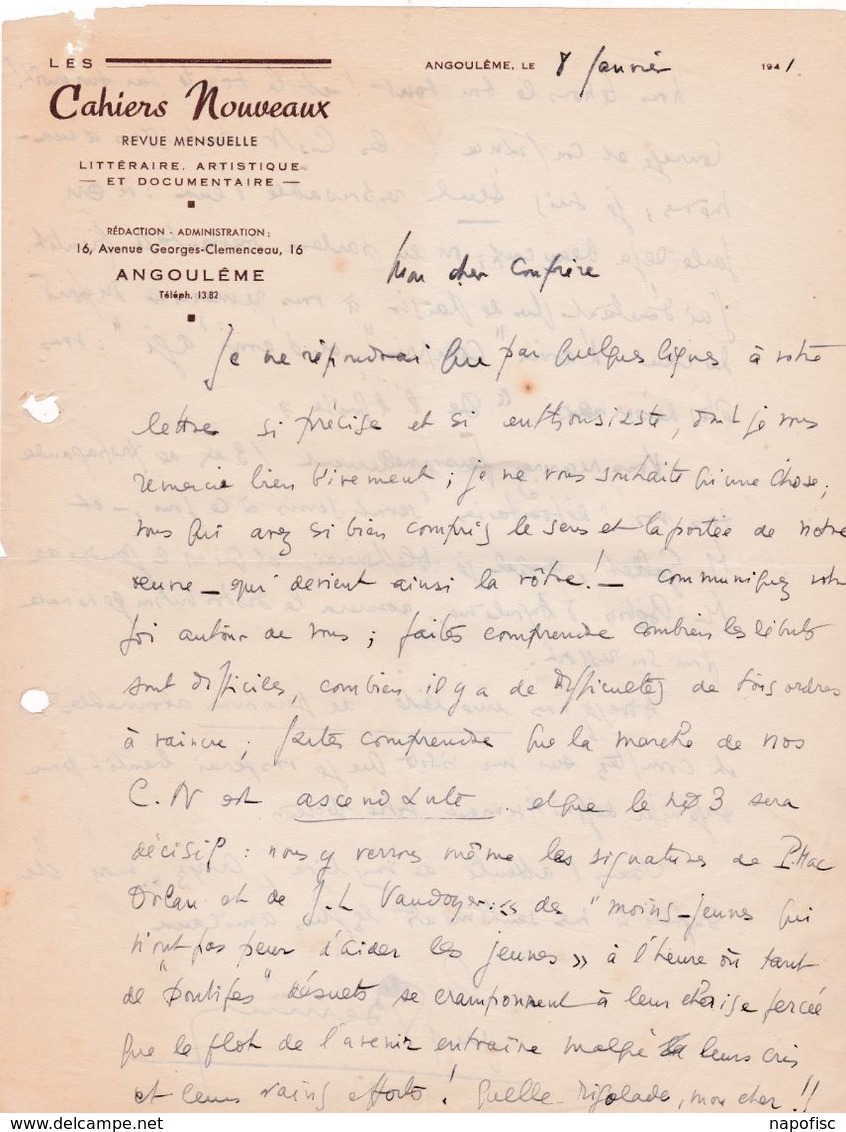 LES
Cahiers Nouveaux
REVUE MENSUELLE
LITTÉRAIRE, ARTISTIQUE
— ET DOCUMENTAIRE —
RÉDACTION - ADMINISTRATION :
16, Avenue Georges-Clemenceau, 16
ANGOULÊME
Téléph. 13.82
ANGOULÊME, LE 8 Janvier 1941
Mon cher Confrère
Je ne répondrai que par quelques lignes à votre
lettre si précise et si enthousiaste, dont je vous
remercie bien vivement ; je ne vous souhaite qu'une chose ;
vous qui avez si bien compris le sens et la portée de notre
œuvre – qui devient ainsi la vôtre ! – communiquez votre
foi autour de vous ; faites comprendre combien les débuts
sont difficiles, combien il y a de difficultés de tous ordres
à vaincre ; faites comprendre que la marche de nos
C. N est ascendante et que le n° 3 sera
décisif : nous y verrons même les signatures de P. Mac
Orlan et de J. L Vaudoyer : « des "moins-jeunes qui
n'ont pas peur d'aider les jeunes » à l'heure où tant
de "Pontifes" désuets se cramponnent à leur chaise percée
que le flot de l'avenir entraîne malgré leurs cris
et leurs vains efforts ! Quelle rigolade, mon cher !!
napofisc